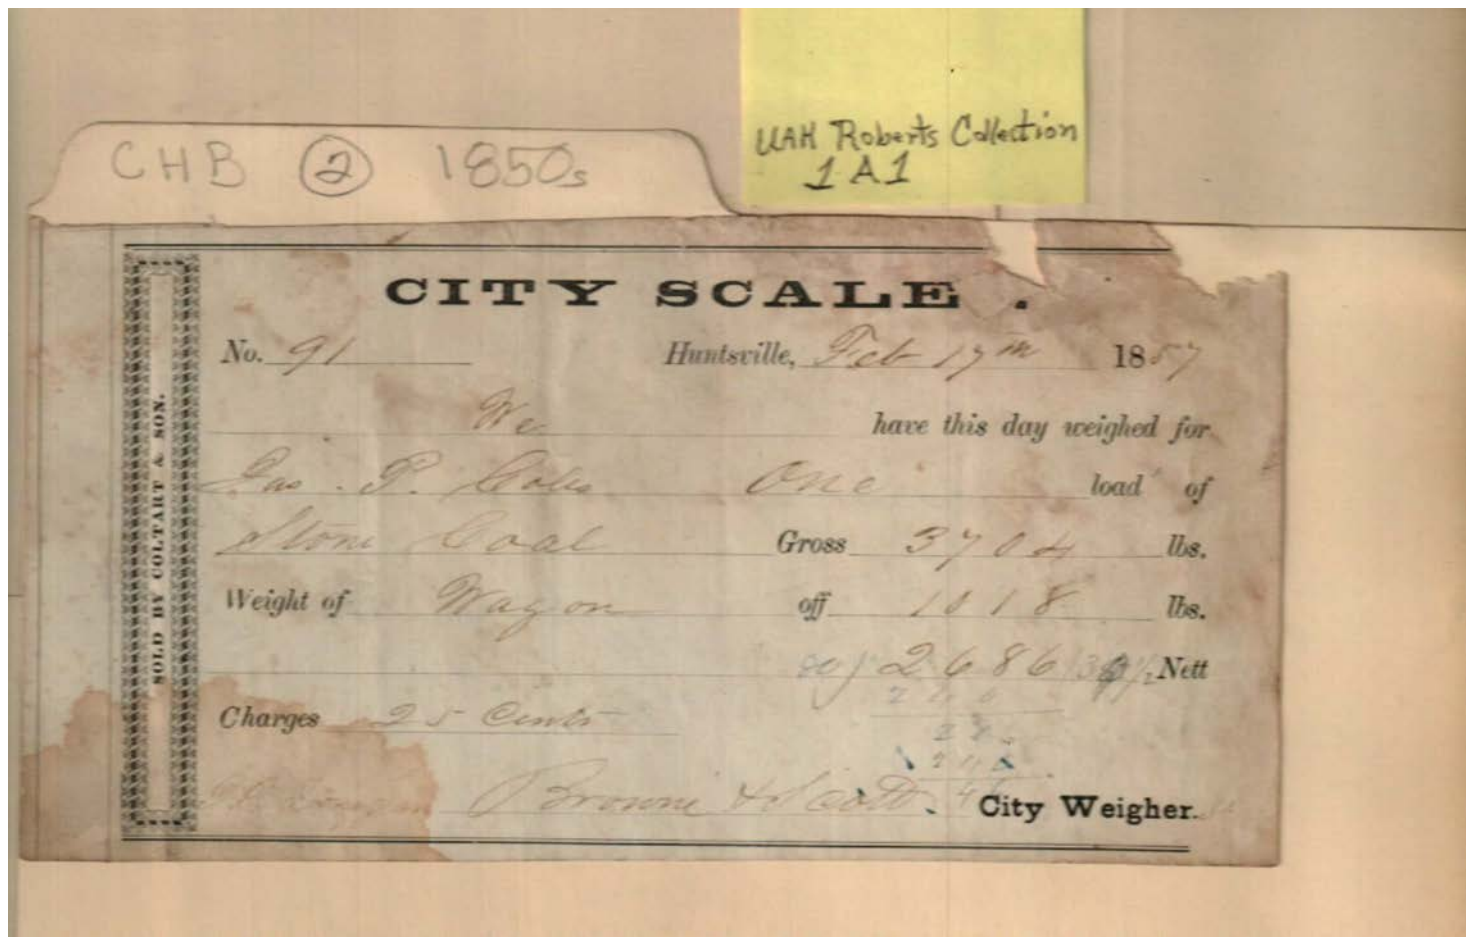 UAH Roberts Collection
1A1
CHB ② 1850s
CITY SCALE.
No. 91 Huntsville, Feb 17th 1857
We have this day weighed for
Jas. P. Coles One load of
Stone Coal Gross 3704 lbs.
Weight of Wagon off 1018 lbs.
2686 Nett
Charges 25 Cents
Browne & Scott. City Weigher.
SOLD BY COLTART & SON.